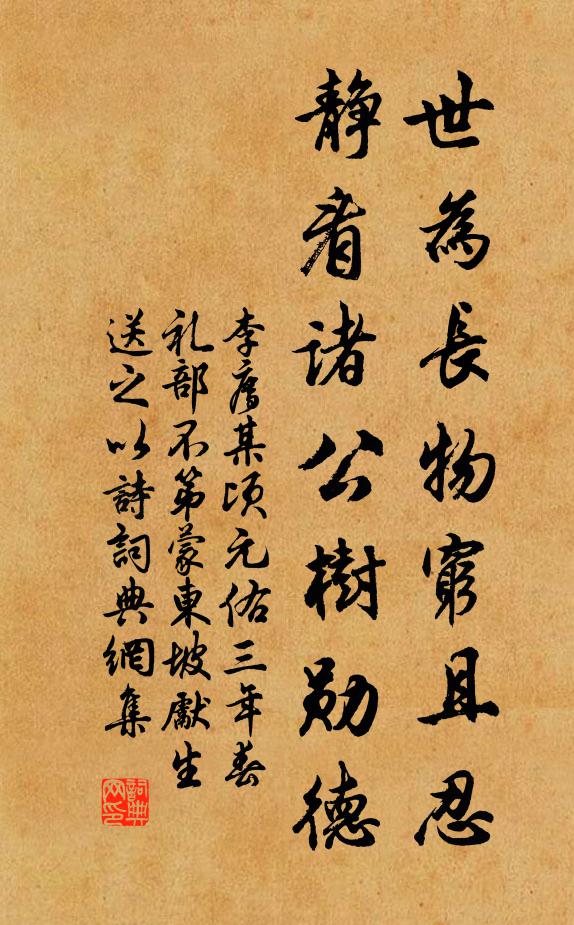 世為長物窮且忍
靜看諸公樹勋德
李廌某顷元佑三年春
礼部不第蒙東坡獻生
送之以詩詞典網集
詞典網印